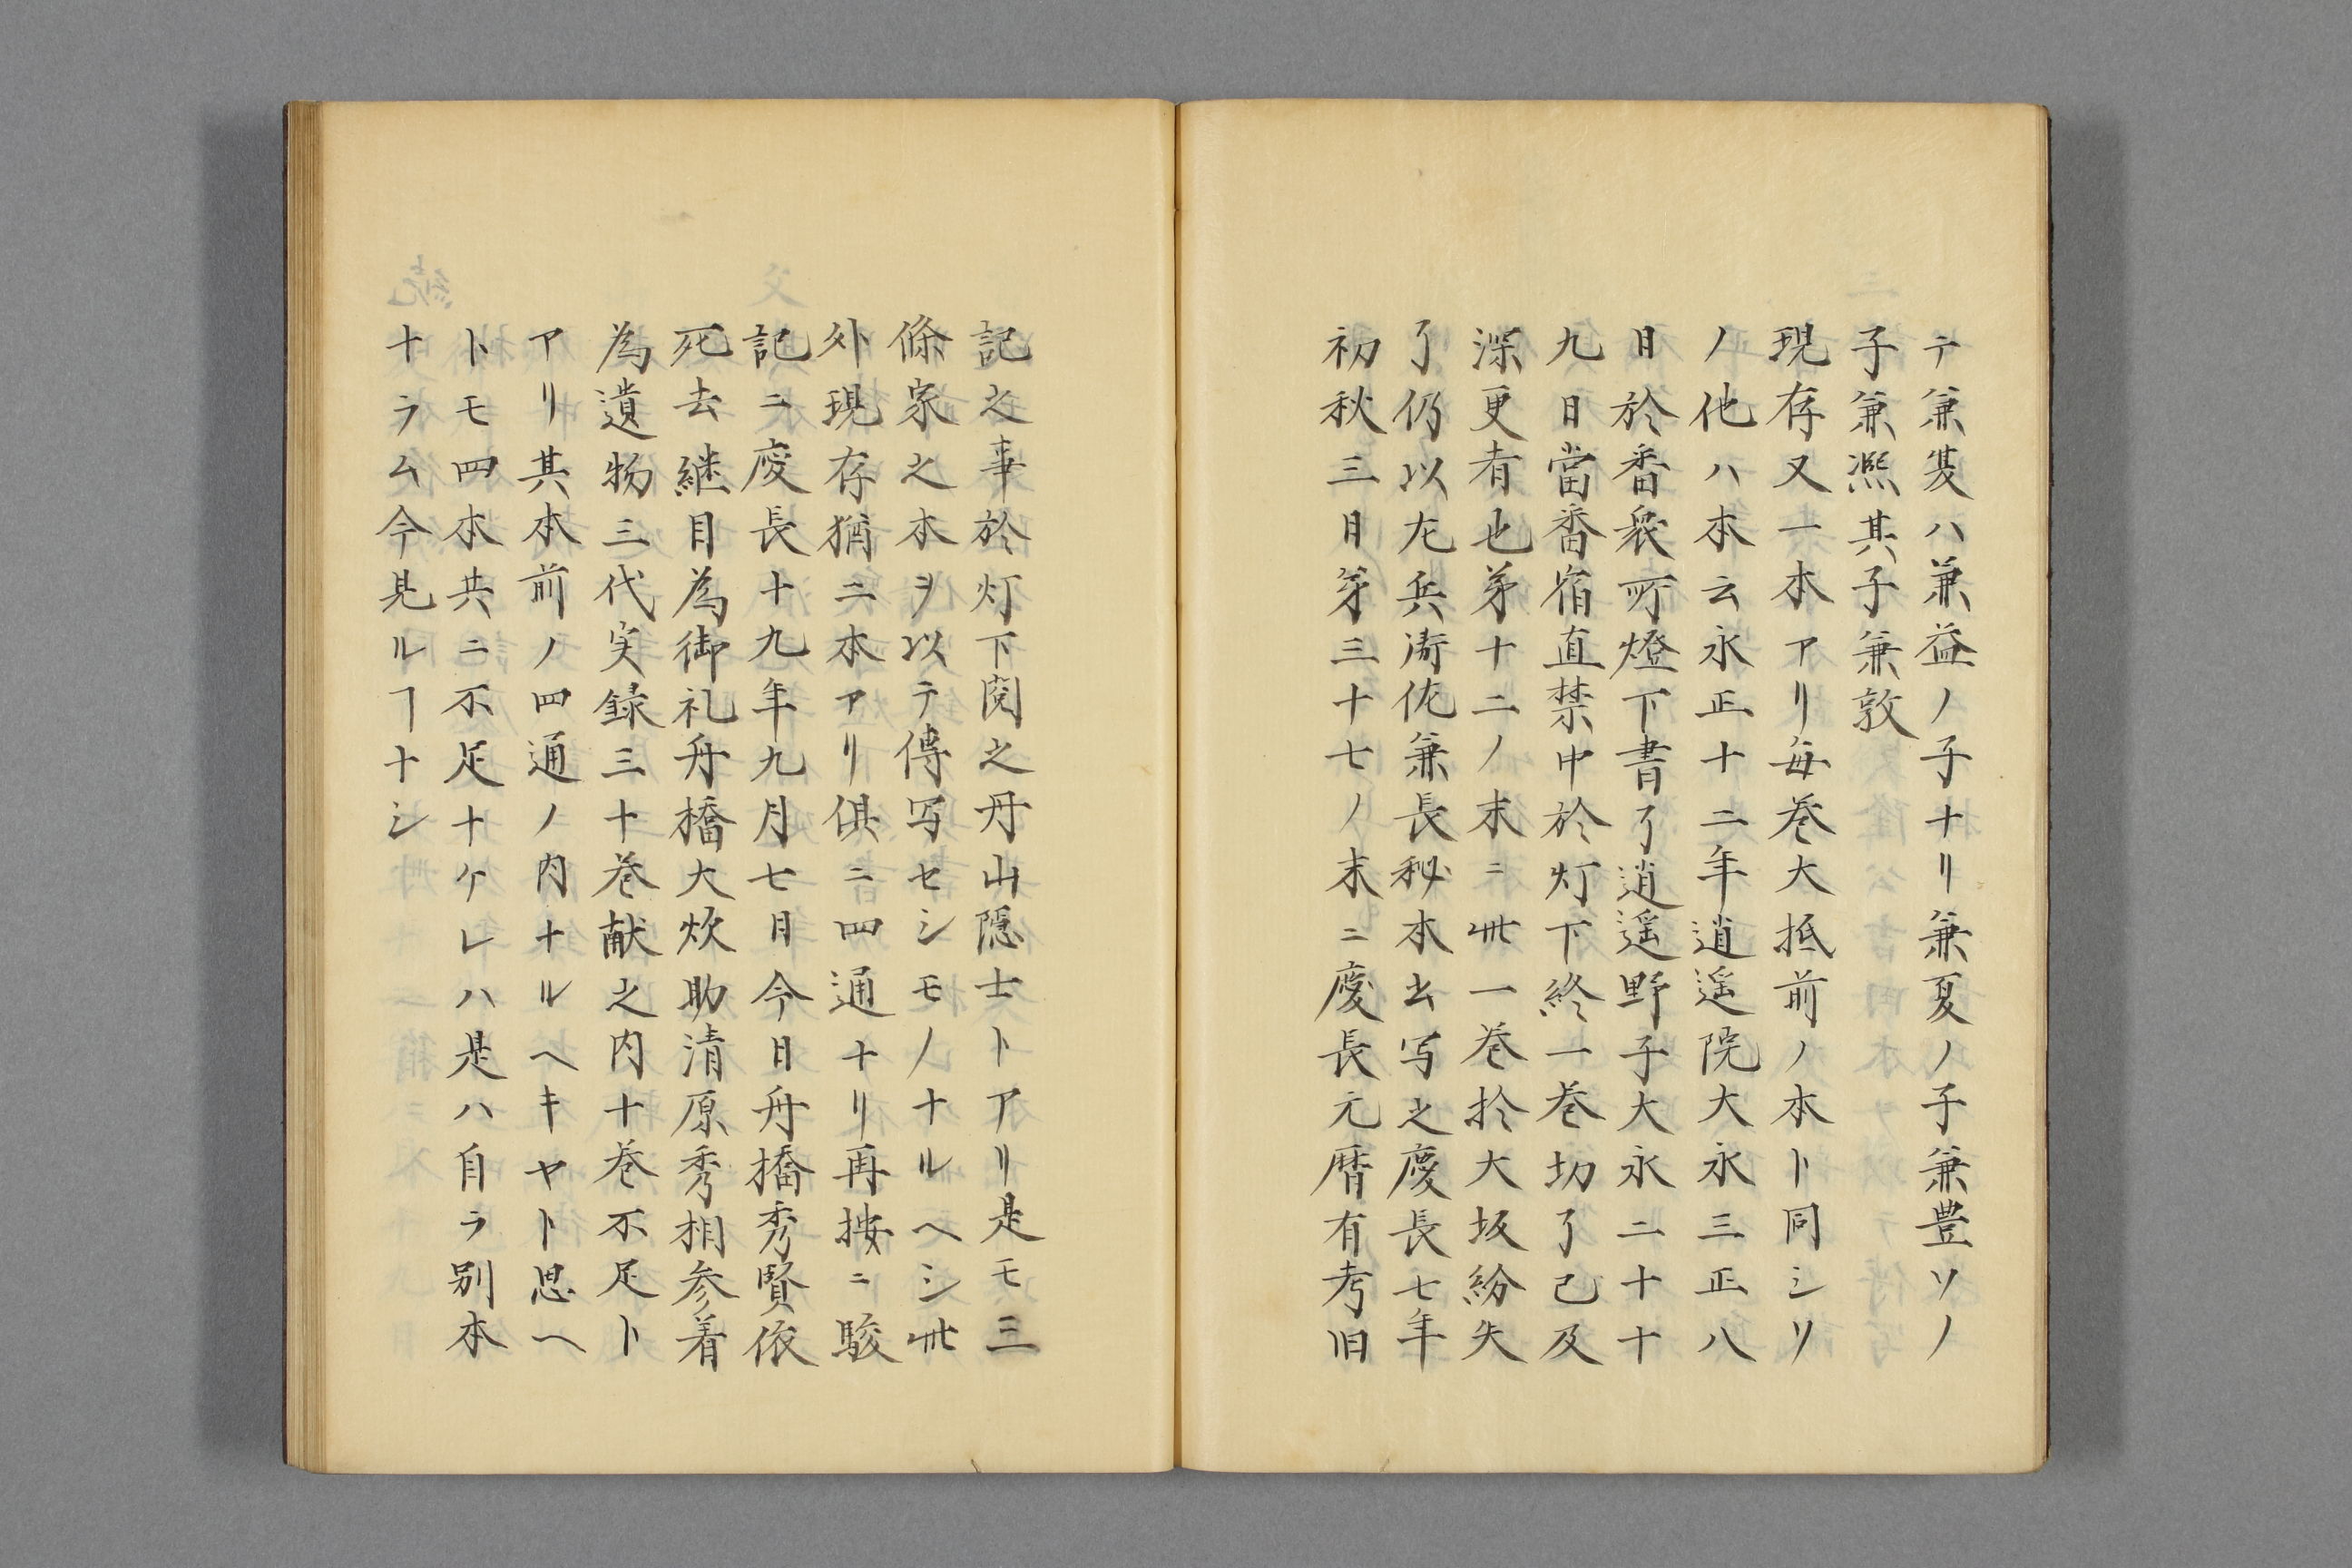 テ兼叐ハ兼益ノ子ナリ兼夏ノ子兼豊ソノ
子兼凞其子兼敦
現存又一本アリ毎巻大抵前ノ本ト同シリ
ノ他ハ本云永正十二年逍遥院大永三正八
日於番衆所燈下書了逍遥野子大永二十十
九日當番宿直禁中於灯下終一巻切了己及
深更者也苐十二ノ末ニ此一巻於大坂紛失
了仍以左兵衛佐兼長秘本出写之慶長七年
初秋三日苐三十七ノ末ニ慶長元暦有考旧
記之事於灯下閲之丹山隠士トアリ是モ三
條家之本ヲ以テ傳写セシモノナルヘシ此
外現存猶二本アリ倶ニ四通ナリ再按ニ駿
記ニ慶長十九年九月七日今日舟橋秀賢依
死去継目為御礼舟橋大炊助清原秀相参着
為遺物三代実録三十巻献之内十巻不足ト
アリ其本前ノ四通ノ内ナルヘキヤト思ヘ
トモ四本共ニ不足ナケレハ是ハ自ラ別本
ナラム今見ルヿナシ